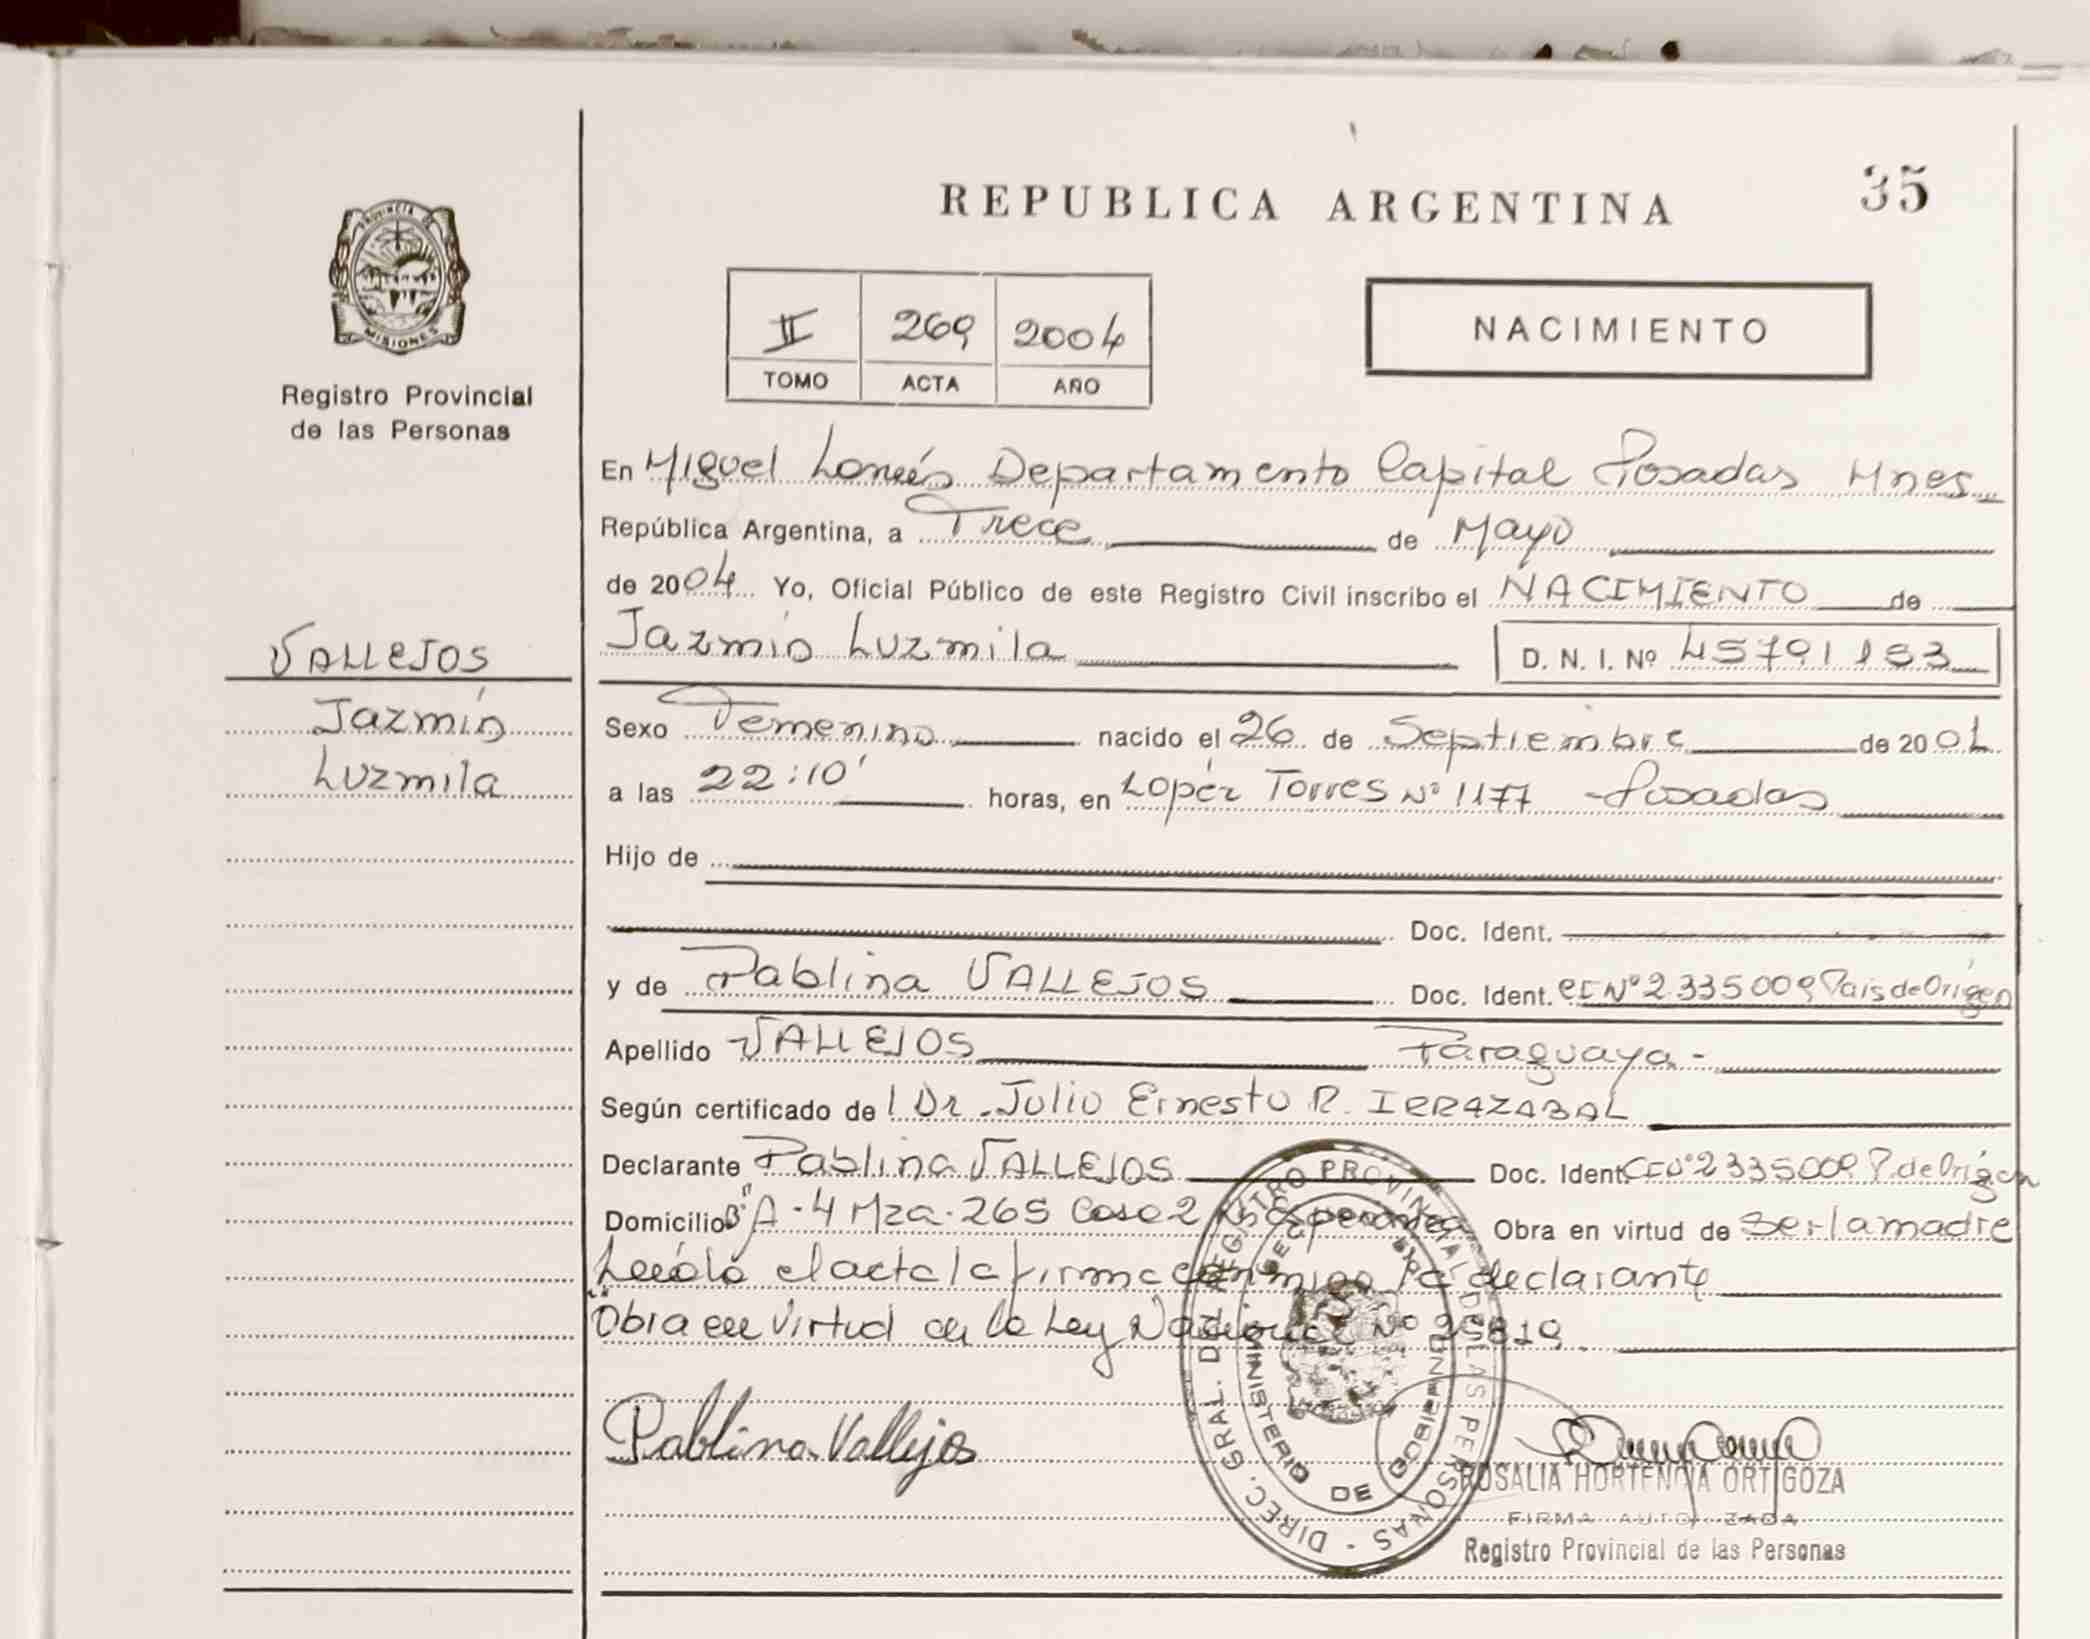 35
REPUBLICA ARGENTINA
PROVINCIA DE
MISIONES
Registro Provincial
de las Personas
II 269 2004
TOMO ACTA AÑO
NACIMIENTO
En Miguel Lanús Departamento Capital Posadas Mnes
República Argentina, a Trece de Mayo
de 2004 Yo, Oficial Público de este Registro Civil inscribo el NACIMIENTO de
VALLEJOS
Jazmín
Luzmila
Jazmín Luzmila D. N. I. Nº 45791153
Sexo Femenino nacido el 26 de Septiembre de 2001
a las 22:10' horas, en Lopér Torres Nº 1177 - Posadas
Hijo de
Doc. Ident.
y de Pablina VALLEJOS Doc. Ident. CI Nº 2.335009 Pais de Origen
Apellido VALLEJOS Paraguaya -
Según certificado del Dr. Julio Ernesto R. IRRAZABAL
Declarante Pablina VALLEJOS Doc. Ident. CI Nº 2335009 P. de Origen
Domicilio Bº A-4 Mza. 265 Casa 2 Obra en virtud de ser la madre
Leída el acta la firma conmigo la declarante
Obra en virtud de la Ley Nacional Nº 25819
Pablina Vallejos
DIREC. GRAL. DEL REGISTRO PROVINCIAL DE LAS PERSONAS -
MINISTERIO DE GOBIERNO
ROSALIA HORTENCIA ORTIGOZA
FIRMA AUTORIZADA
Registro Provincial de las Personas